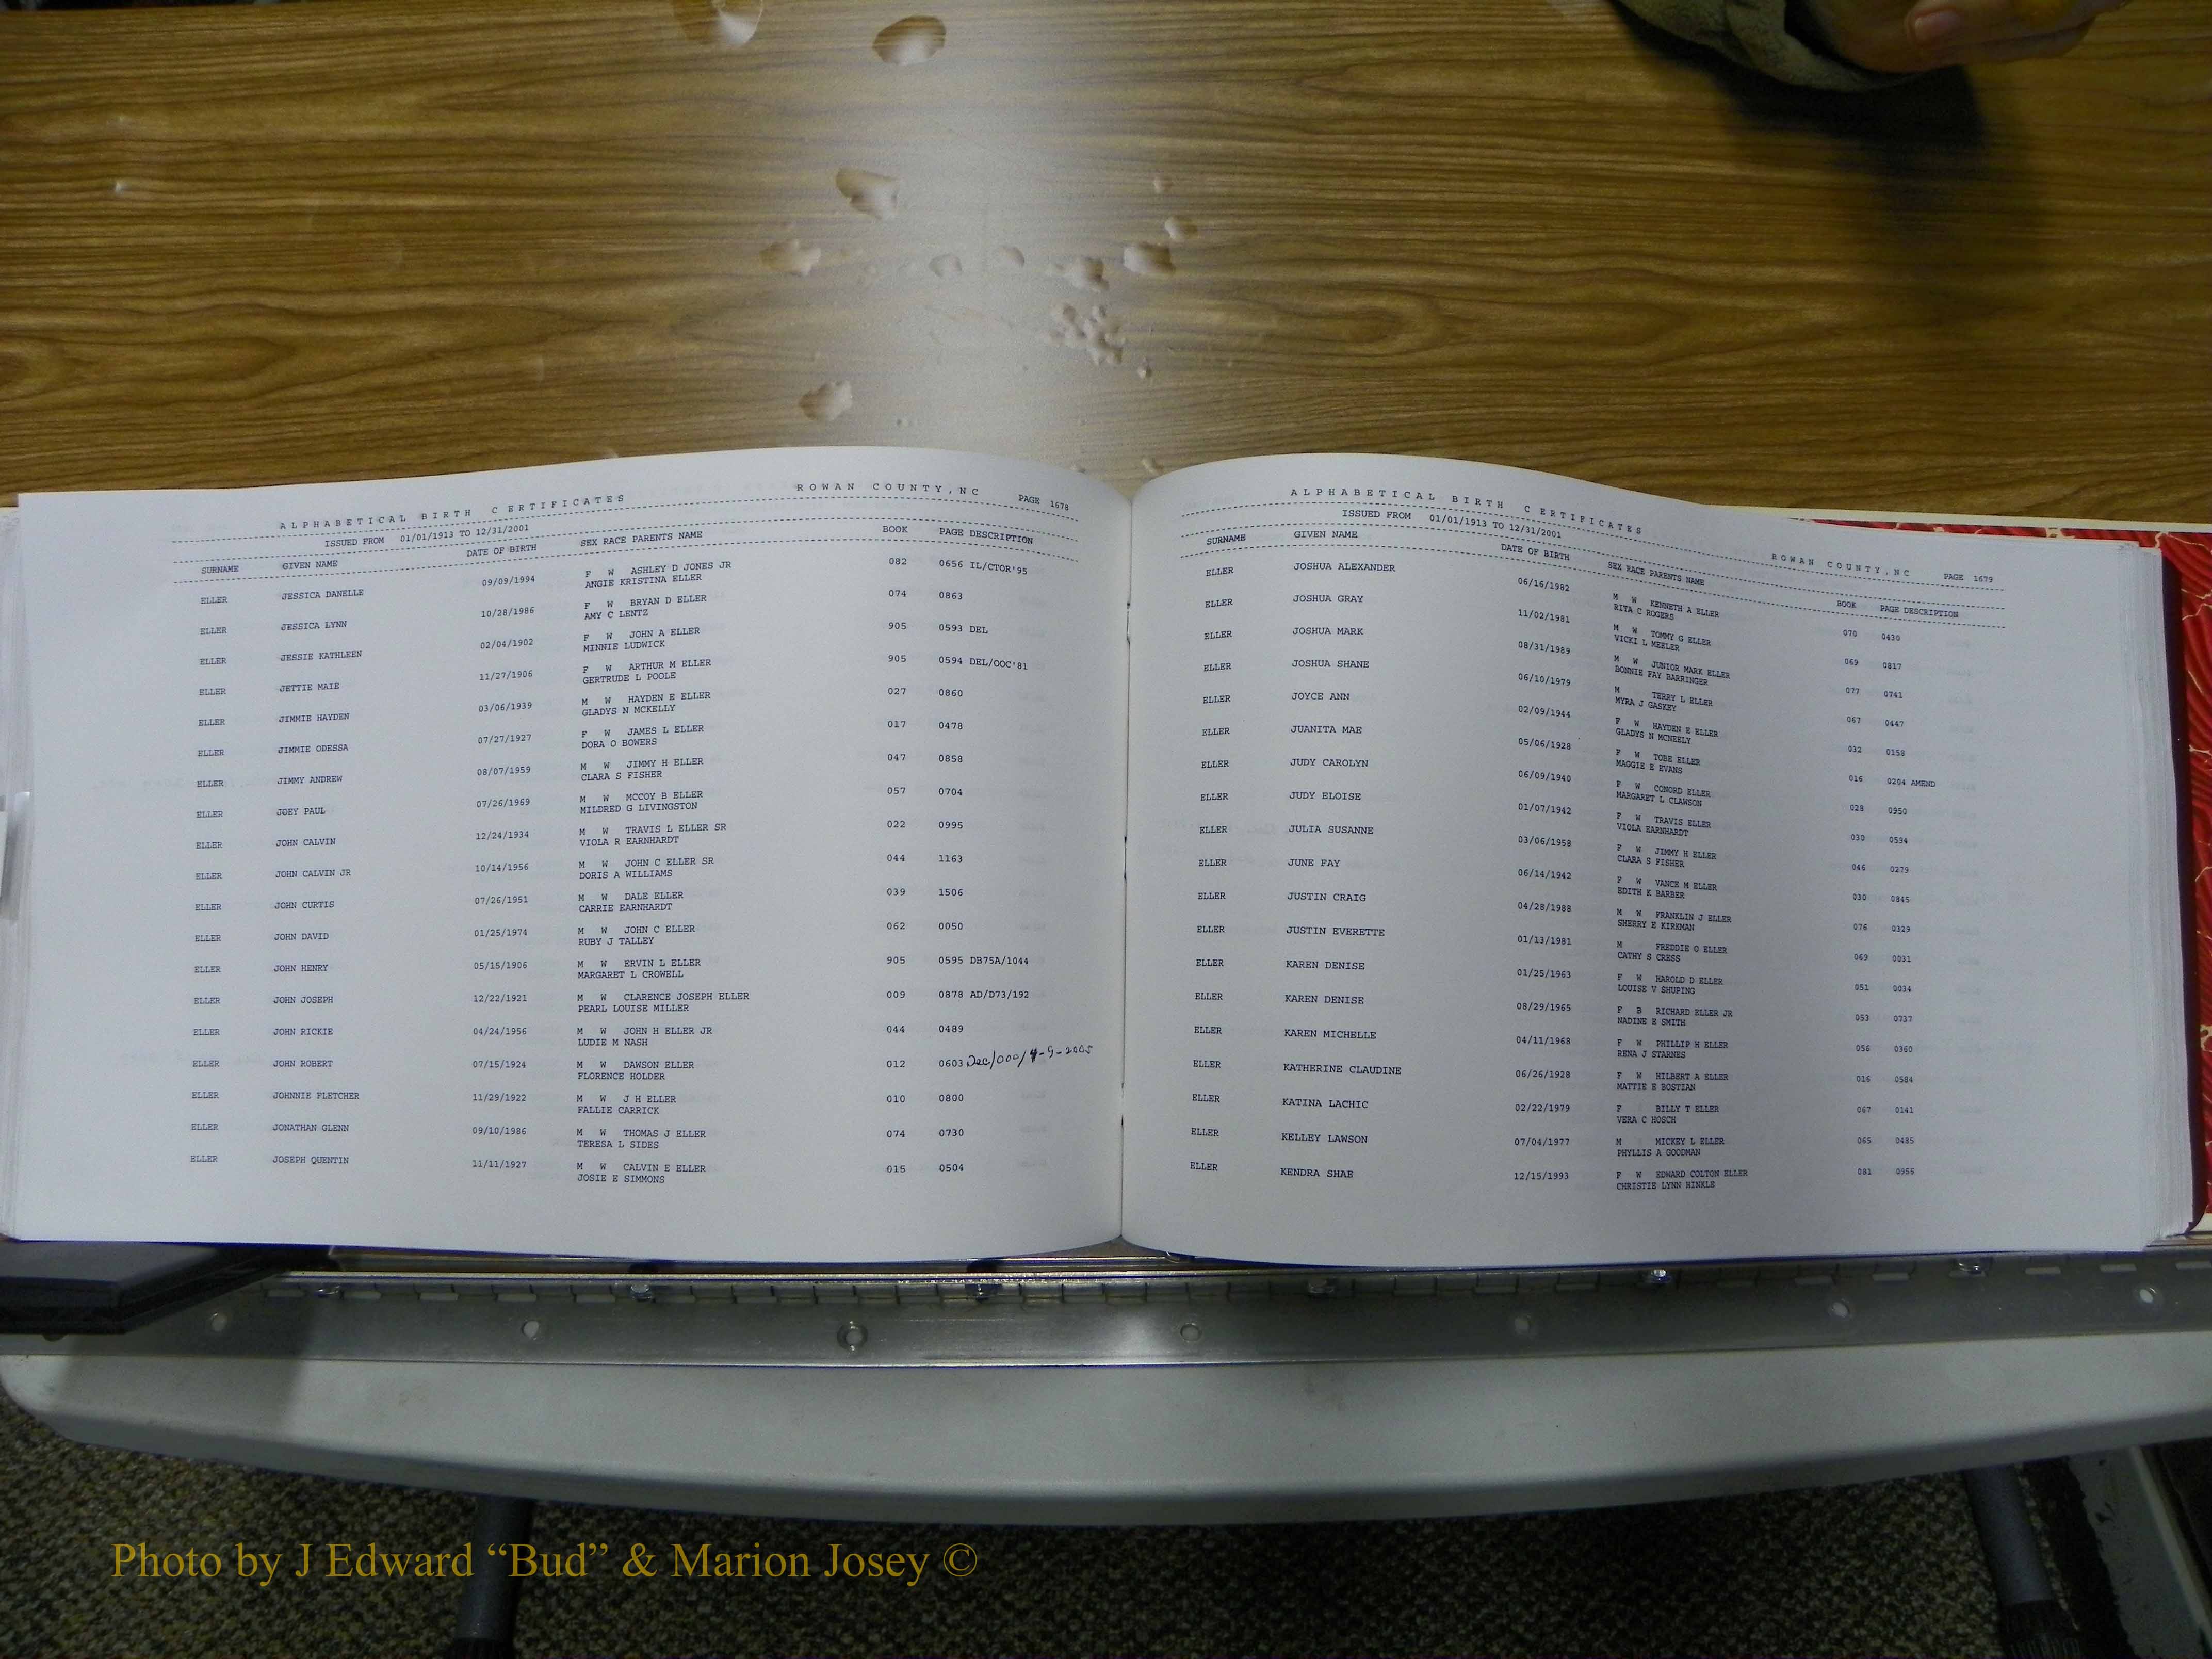 ALPHABETICAL BIRTH CERTIFICATES ROWAN COUNTY,NC PAGE 1678
ISSUED FROM 01/01/1913 TO 12/31/2001
SURNAME GIVEN NAME DATE OF BIRTH SEX RACE PARENTS NAME BOOK PAGE DESCRIPTION
ELLER JESSICA DANELLE 09/09/1994 F W ASHLEY D JONES JR 082 0656 IL/CTOR'95
ANGIE KRISTINA ELLER
ELLER JESSICA LYNN 10/28/1986 F W BRYAN D ELLER 074 0863
AMY C LENTZ
ELLER JESSIE KATHLEEN 02/04/1902 F W JOHN A ELLER 905 0593 DEL
MINNIE LUDWICK
ELLER JETTIE MAIE 11/27/1906 F W ARTHUR M ELLER 905 0594 DEL/OOC'81
GERTRUDE L POOLE
ELLER JIMMIE HAYDEN 03/06/1939 M W HAYDEN E ELLER 027 0860
GLADYS N MCKELLY
ELLER JIMMIE ODESSA 07/27/1927 F W JAMES L ELLER 017 0478
DORA O BOWERS
ELLER JIMMY ANDREW 08/07/1959 M W JIMMY H ELLER 047 0858
CLARA S FISHER
ELLER JOEY PAUL 07/26/1969 M W MCCOY B ELLER 057 0704
MILDRED G LIVINGSTON
ELLER JOHN CALVIN 12/24/1934 M W TRAVIS L ELLER SR 022 0995
VIOLA R EARNHARDT
ELLER JOHN CALVIN JR 10/14/1956 M W JOHN C ELLER SR 044 1163
DORIS A WILLIAMS
ELLER JOHN CURTIS 07/26/1951 M W DALE ELLER 039 1506
CARRIE EARNHARDT
ELLER JOHN DAVID 01/25/1974 M W JOHN C ELLER 062 0050
RUBY J TALLEY
ELLER JOHN HENRY 05/15/1906 M W ERVIN L ELLER 905 0595 DB75A/1044
MARGARET L CROWELL
ELLER JOHN JOSEPH 12/22/1921 M W CLARENCE JOSEPH ELLER 009 0878 AD/D73/192
PEARL LOUISE MILLER
ELLER JOHN RICKIE 04/24/1956 M W JOHN H ELLER JR 044 0489
LUDIE M NASH
ELLER JOHN ROBERT 07/15/1924 M W DAWSON ELLER 012 0603
FLORENCE HOLDER
ELLER JOHNNIE FLETCHER 11/29/1922 M W J H ELLER 010 0800
FALLIE CARRICK
ELLER JONATHAN GLENN 09/10/1986 M W THOMAS J ELLER 074 0730
TERESA L SIDES
ELLER JOSEPH QUENTIN 11/11/1927 M W CALVIN E ELLER 015 0504
JOSIE E SIMMONS
ALPHABETICAL BIRTH CERTIFICATES ROWAN COUNTY,NC PAGE 1679
ISSUED FROM 01/01/1913 TO 12/31/2001
SURNAME GIVEN NAME DATE OF BIRTH SEX RACE PARENTS NAME BOOK PAGE DESCRIPTION
ELLER JOSHUA ALEXANDER 06/16/1982 M W KENNETH A ELLER 070 0430
RITA C ROGERS
ELLER JOSHUA GRAY 11/02/1981 M W TOMMY G ELLER 069 0817
VICKI L MEELER
ELLER JOSHUA MARK 08/31/1989 M W JUNIOR MARK ELLER 077 0741
BONNIE FAY BARRINGER
ELLER JOSHUA SHANE 06/10/1979 M TERRY L ELLER 067 0447
MYRA J GASKEY
ELLER JOYCE ANN 02/09/1944 F W HAYDEN E ELLER 032 0158
GLADYS N MCNEELY
ELLER JUANITA MAE 05/06/1928 F W TOBE ELLER 016 0204 AMEND
MAGGIE E EVANS
ELLER JUDY CAROLYN 06/09/1940 F W CONORD ELLER 028 0950
MARGARET L CLAWSON
ELLER JUDY ELOISE 01/07/1942 F W TRAVIS ELLER 030 0594
VIOLA EARNHARDT
ELLER JULIA SUSANNE 03/06/1958 F W JIMMY H ELLER 046 0279
CLARA S FISHER
ELLER JUNE FAY 06/14/1942 F W VANCE M ELLER 030 0845
EDITH K BARBER
ELLER JUSTIN CRAIG 04/28/1988 M W FRANKLIN J ELLER 076 0329
SHERRY E KIRKMAN
ELLER JUSTIN EVERETTE 01/13/1981 M FREDDIE O ELLER 069 0031
CATHY S CRESS
ELLER KAREN DENISE 01/25/1963 F W HAROLD D ELLER 051 0034
LOUISE V SHUPING
ELLER KAREN DENISE 08/29/1965 F B RICHARD ELLER JR 053 0737
NADINE E SMITH
ELLER KAREN MICHELLE 04/11/1968 F W PHILLIP H ELLER 056 0360
RENA J STARNES
ELLER KATHERINE CLAUDINE 06/26/1928 F W HILBERT A ELLER 016 0584
MATTIE E BOSTIAN
ELLER KATINA LACHIC 02/22/1979 F BILLY T ELLER 067 0141
VERA C HOSCH
ELLER KELLEY LAWSON 07/04/1977 M MICKEY L ELLER 065 0485
PHYLLIS A GOODMAN
ELLER KENDRA SHAE 12/15/1993 F W EDWARD COLTON ELLER 081 0956
CHRISTIE LYNN HINKLE
Photo by J Edward “Bud” & Marion Josey ©